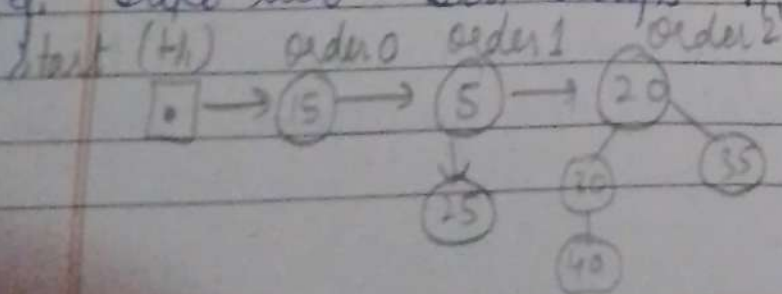 Start (th) order 0 order 1 order 2
15 5 20
25 30 35
40